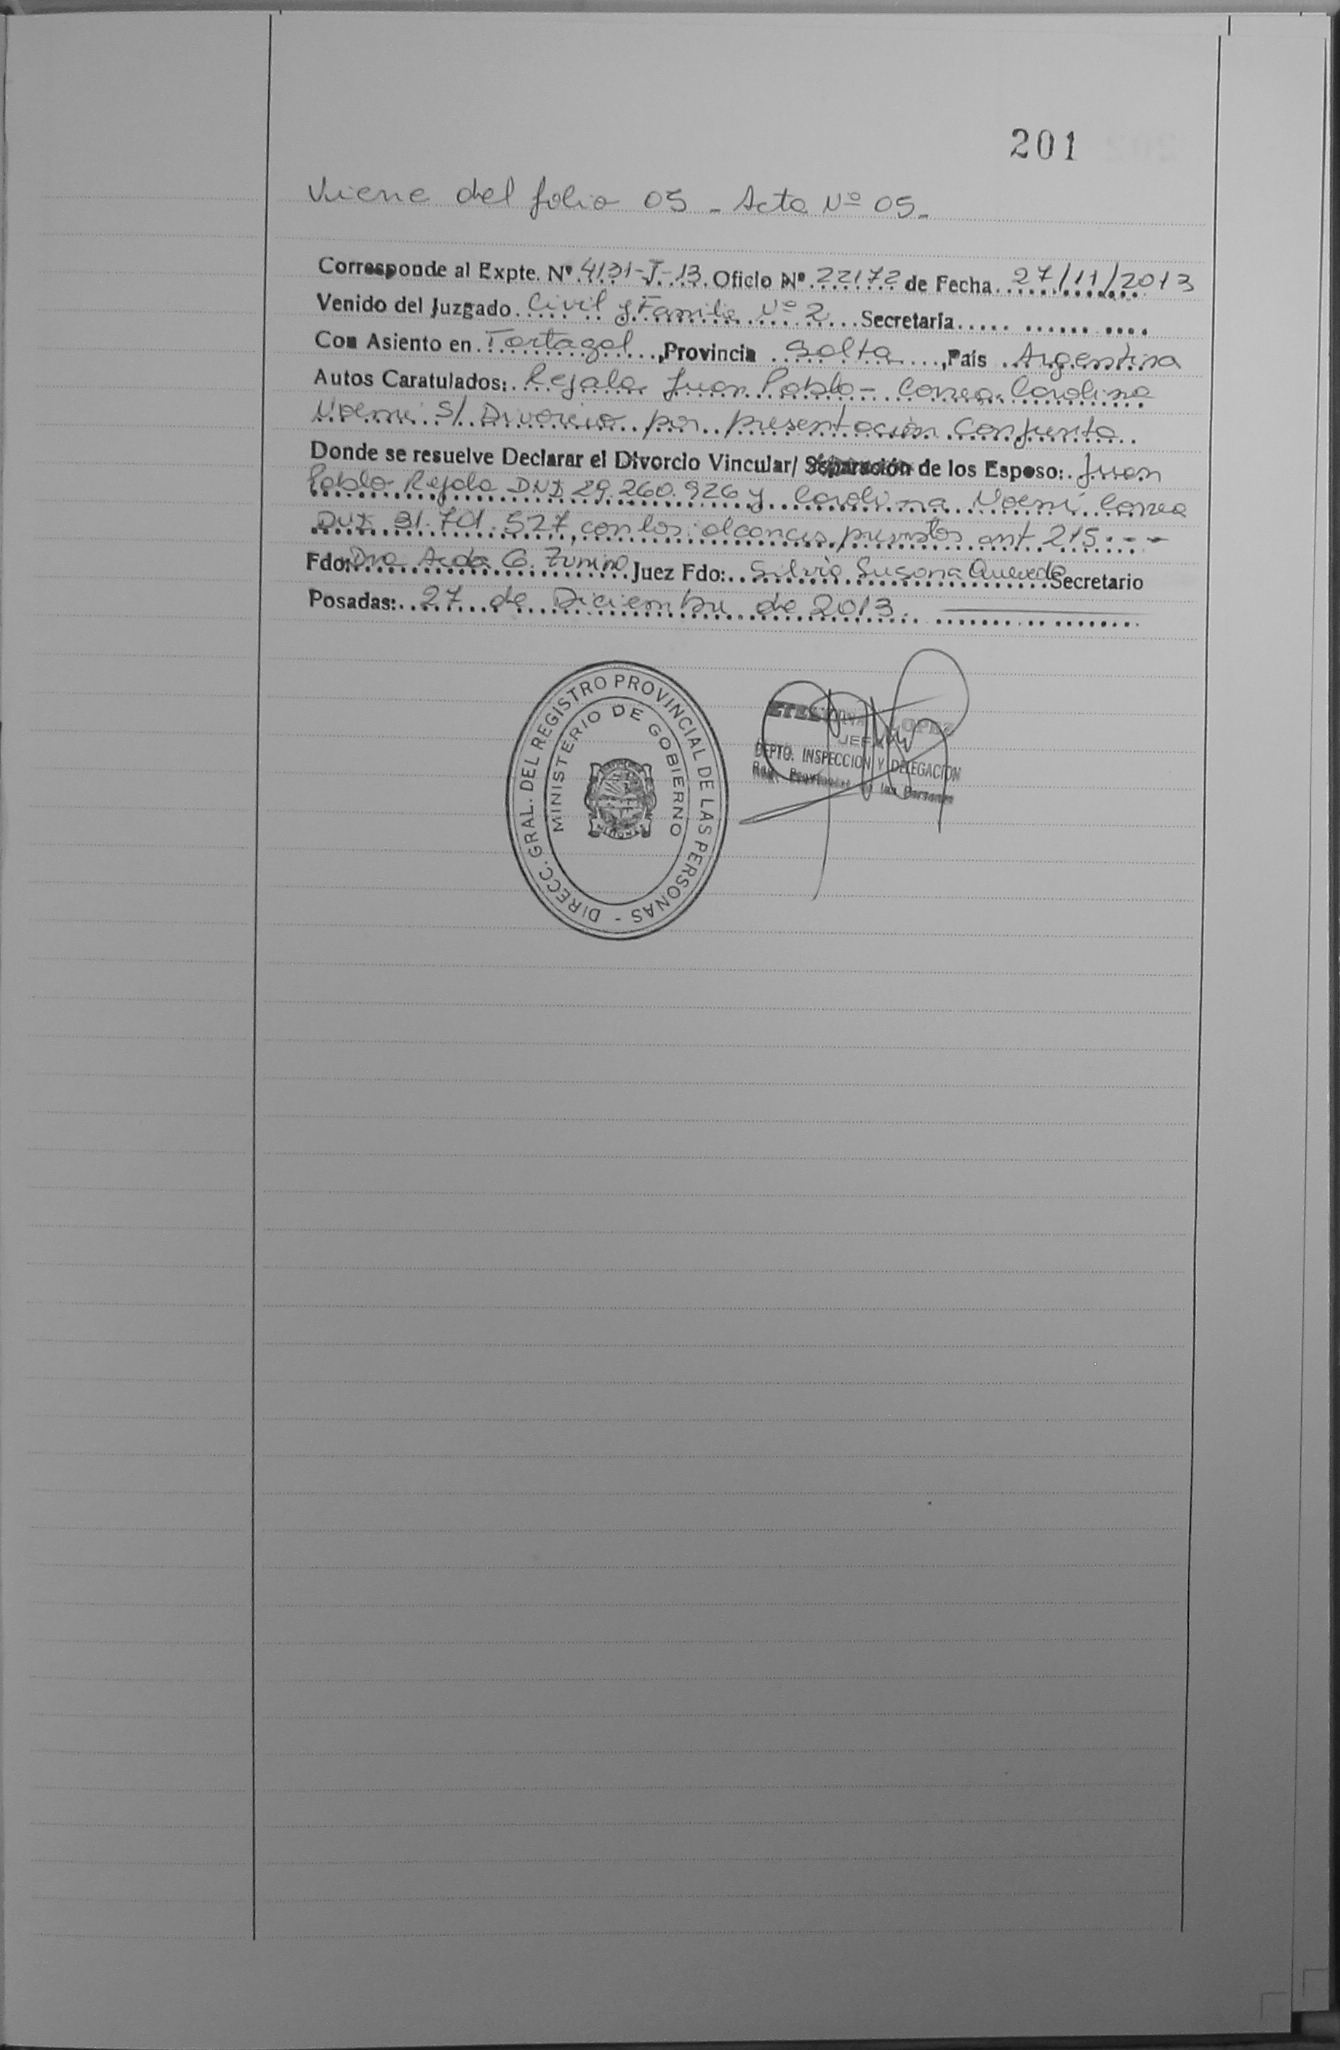 201
Viene del folio 05 - Acta Nº 05 -
Corresponde al Expte. Nº 4131-J-13. Oficio Nº 22172 de Fecha 27/11/2013
Venido del Juzgado Civil y Familia Nº 2 Secretaría
Con Asiento en Tartagal, Provincia Salta, País Argentina
Autos Caratulados: Rejala Juan Pablo - Correa Carolina
Noemí S/ Divorcio por presentación Conjunta
Donde se resuelve Declarar el Divorcio Vincular/ Separación de los Esposo: Juan
Pablo Rejala DNI 29.260.926 y Carolina Noemí Correa
DNI 31.701.527, con los alcances previstos art. 215.--
Fdo: Dra C. Zunino Juez Fdo: Silvia Susana Quevedo Secretario
Posadas: 27 de Diciembre de 2013.
DIRECC. GRAL. DEL REGISTRO PROVINCIAL DE LAS PERSONAS -
MINISTERIO DE GOBIERNO
LOPEZ
JEFA
DEPTO. INSPECCION Y DELEGACION
Reg. Provincial de las Personas